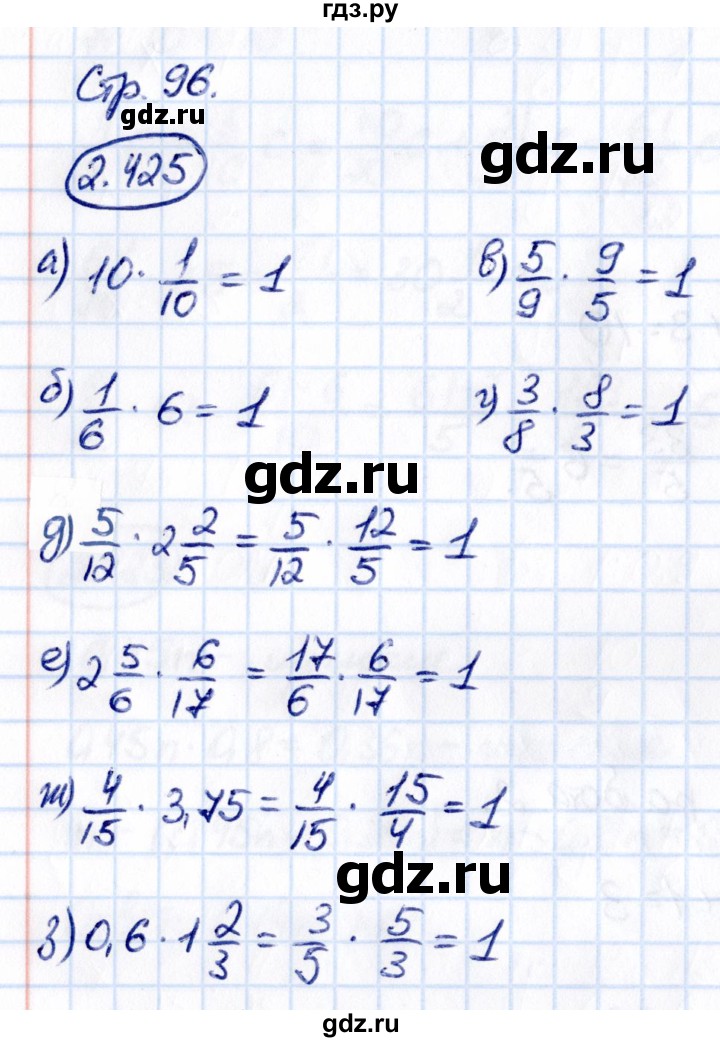 гдз.ру
Стр. 96.
gdz.ru
gdz.ru
2.425
а) 10 · 1/10 = 1
в) 5/9 · 9/5 = 1
б) 1/6 · 6 = 1
г) 3/8 · 8/3 = 1
gdz.ru
д) 5/12 · 2 2/5 = 5/12 · 12/5 = 1
е) 2 5/6 · 6/17 = 17/6 · 6/17 = 1
ж) 4/15 · 3,75 = 4/15 · 15/4 = 1
gdz.ru
з) 0,6 · 1 2/3 = 3/5 · 5/3 = 1
gdz.ru